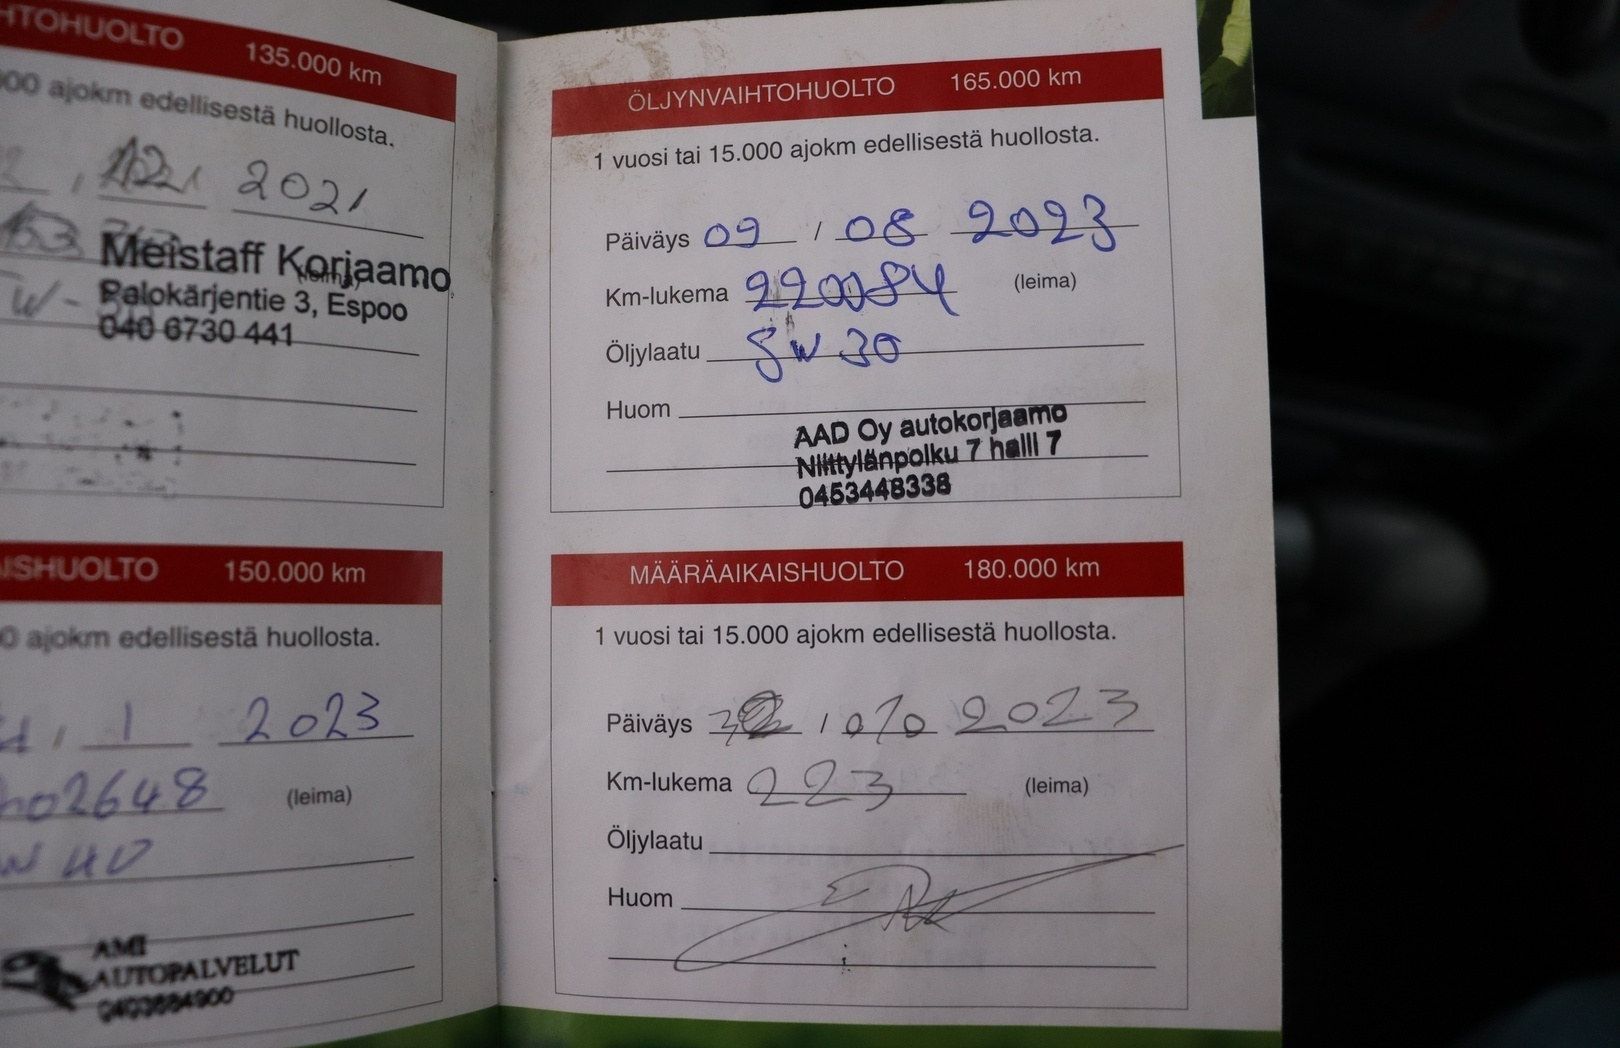 HTOHUOLTO 135.000 km
000 ajokm edellisestä huollosta.
2021
Meistaff Korjaamo
(leima)
Palokärjentie 3, Espoo
040 6730 441
ISHUOLTO 150.000 km
0 ajokm edellisestä huollosta.
/ 1 2023
02648 (leima)
W 40
AMI
AUTOPALVELUT
ÖLJYNVAIHTOHUOLTO 165.000 km
1 vuosi tai 15.000 ajokm edellisestä huollosta.
Päiväys 09 / 08 2023
Km-lukema 220084 (leima)
Öljylaatu 5W30
Huom
AAD Oy autokorjaamo
Niittylänpolku 7 halli 7
0453448338
MÄÄRÄAIKAISHUOLTO 180.000 km
1 vuosi tai 15.000 ajokm edellisestä huollosta.
Päiväys / 2023
Km-lukema 223 (leima)
Öljylaatu
Huom